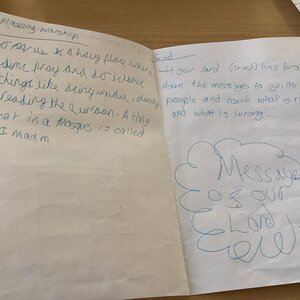 Placesog Worship
Mosque is a holy place where
some pray and do islamic
things like doing
reading the Qur'aan. A Holy
in a Mosque is called
Imam.
God
Our lord (God) has
down the messages to guide
people and teach what is
and what is wrong.
Message
of our
Lord